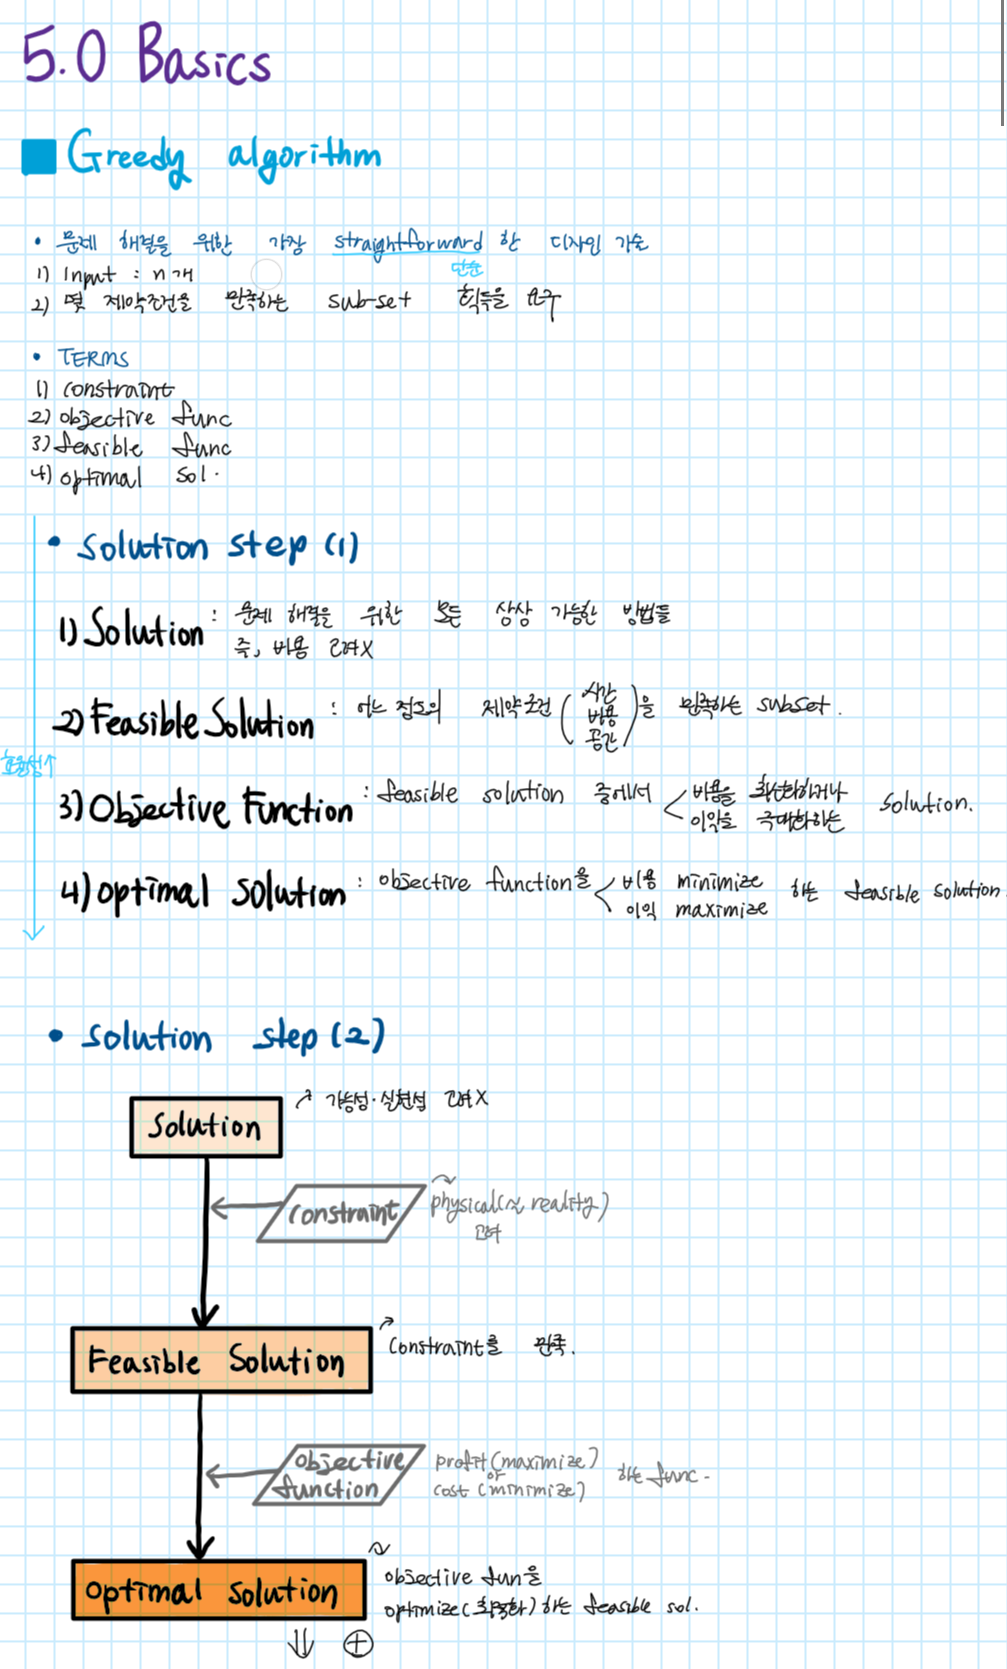 5.0 Basics
■ Greedy algorithm
• 문제 해결을 위한 가장 straightforward 한 디자인 기술
단순
1) Input : n개
2) 몇 제약조건을 만족하는 sub-set 획득을 요구
• TERMS
1) constraint
2) objective func
3) feasible func
4) optimal sol.
• solution step (1)
1) Solution : 문제 해결을 위한 모든 상상 가능한 방법들
즉, 비용 고려X
2) Feasible Solution : 어느 정도의 제약조건 ( 시간 비용 공간 ) 을 만족하는 subset.
효율성↑
3) Objective Function : feasible solution 중에서 < 비용을 최소화하거나 이익을 극대화하는 solution.
4) optimal solution : objective function을 < 비용 minimize 이익 maximize 하는 feasible solution
• solution step (2)
Solution ↗ 가능성·실현성 고려X
constraint physical(~ reality)
고려
Feasible Solution Constraint를 만족.
objective function profit (maximize) or cost (minimize) 하는 func.
optimal solution objective fun을
optimize( ) 하는 feasible sol.
⇓ ⊕